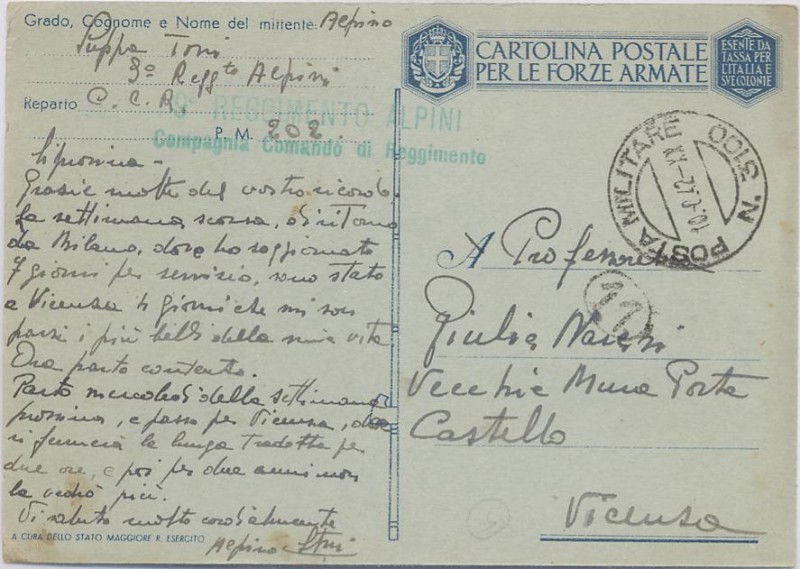 Grado, Cognome e Nome del mittente: Alpino
Toni
9º Reggto Alpini
Reparto C. C. R.
P. M. 202.
9º REGGIMENTO ALPINI
Compagnia Comando di Reggimento
CARTOLINA POSTALE
PER LE FORZE ARMATE
ESENTE DA
TASSA PER
L'ITALIA E
SVE COLONIE
POSTA MILITARE N. 5100
10.6.42-XX
Signorina -
Grazie molte del vostro ricordo.
La settimana scorsa, di ritorno
da Milano, dove ho soggiornato
7 giorni per servizio, sono stato
a Vicenza 4 giorni che mi son
parsi i più belli della mia vita
Ora parto contento.
Parto mercoledì della settimana
prossima, e passo per Vicenza, dove
si fermerà la lunga tradotta per
due ore, e poi per due anni non
la vedrò più.
Vi saluto molto cordialmente
Alpino Toni
A CURA DELLO STATO MAGGIORE R. ESERCITO
A Professoressa
11
Giulia
Vecchie Mura Porta
Castello
Vicenza